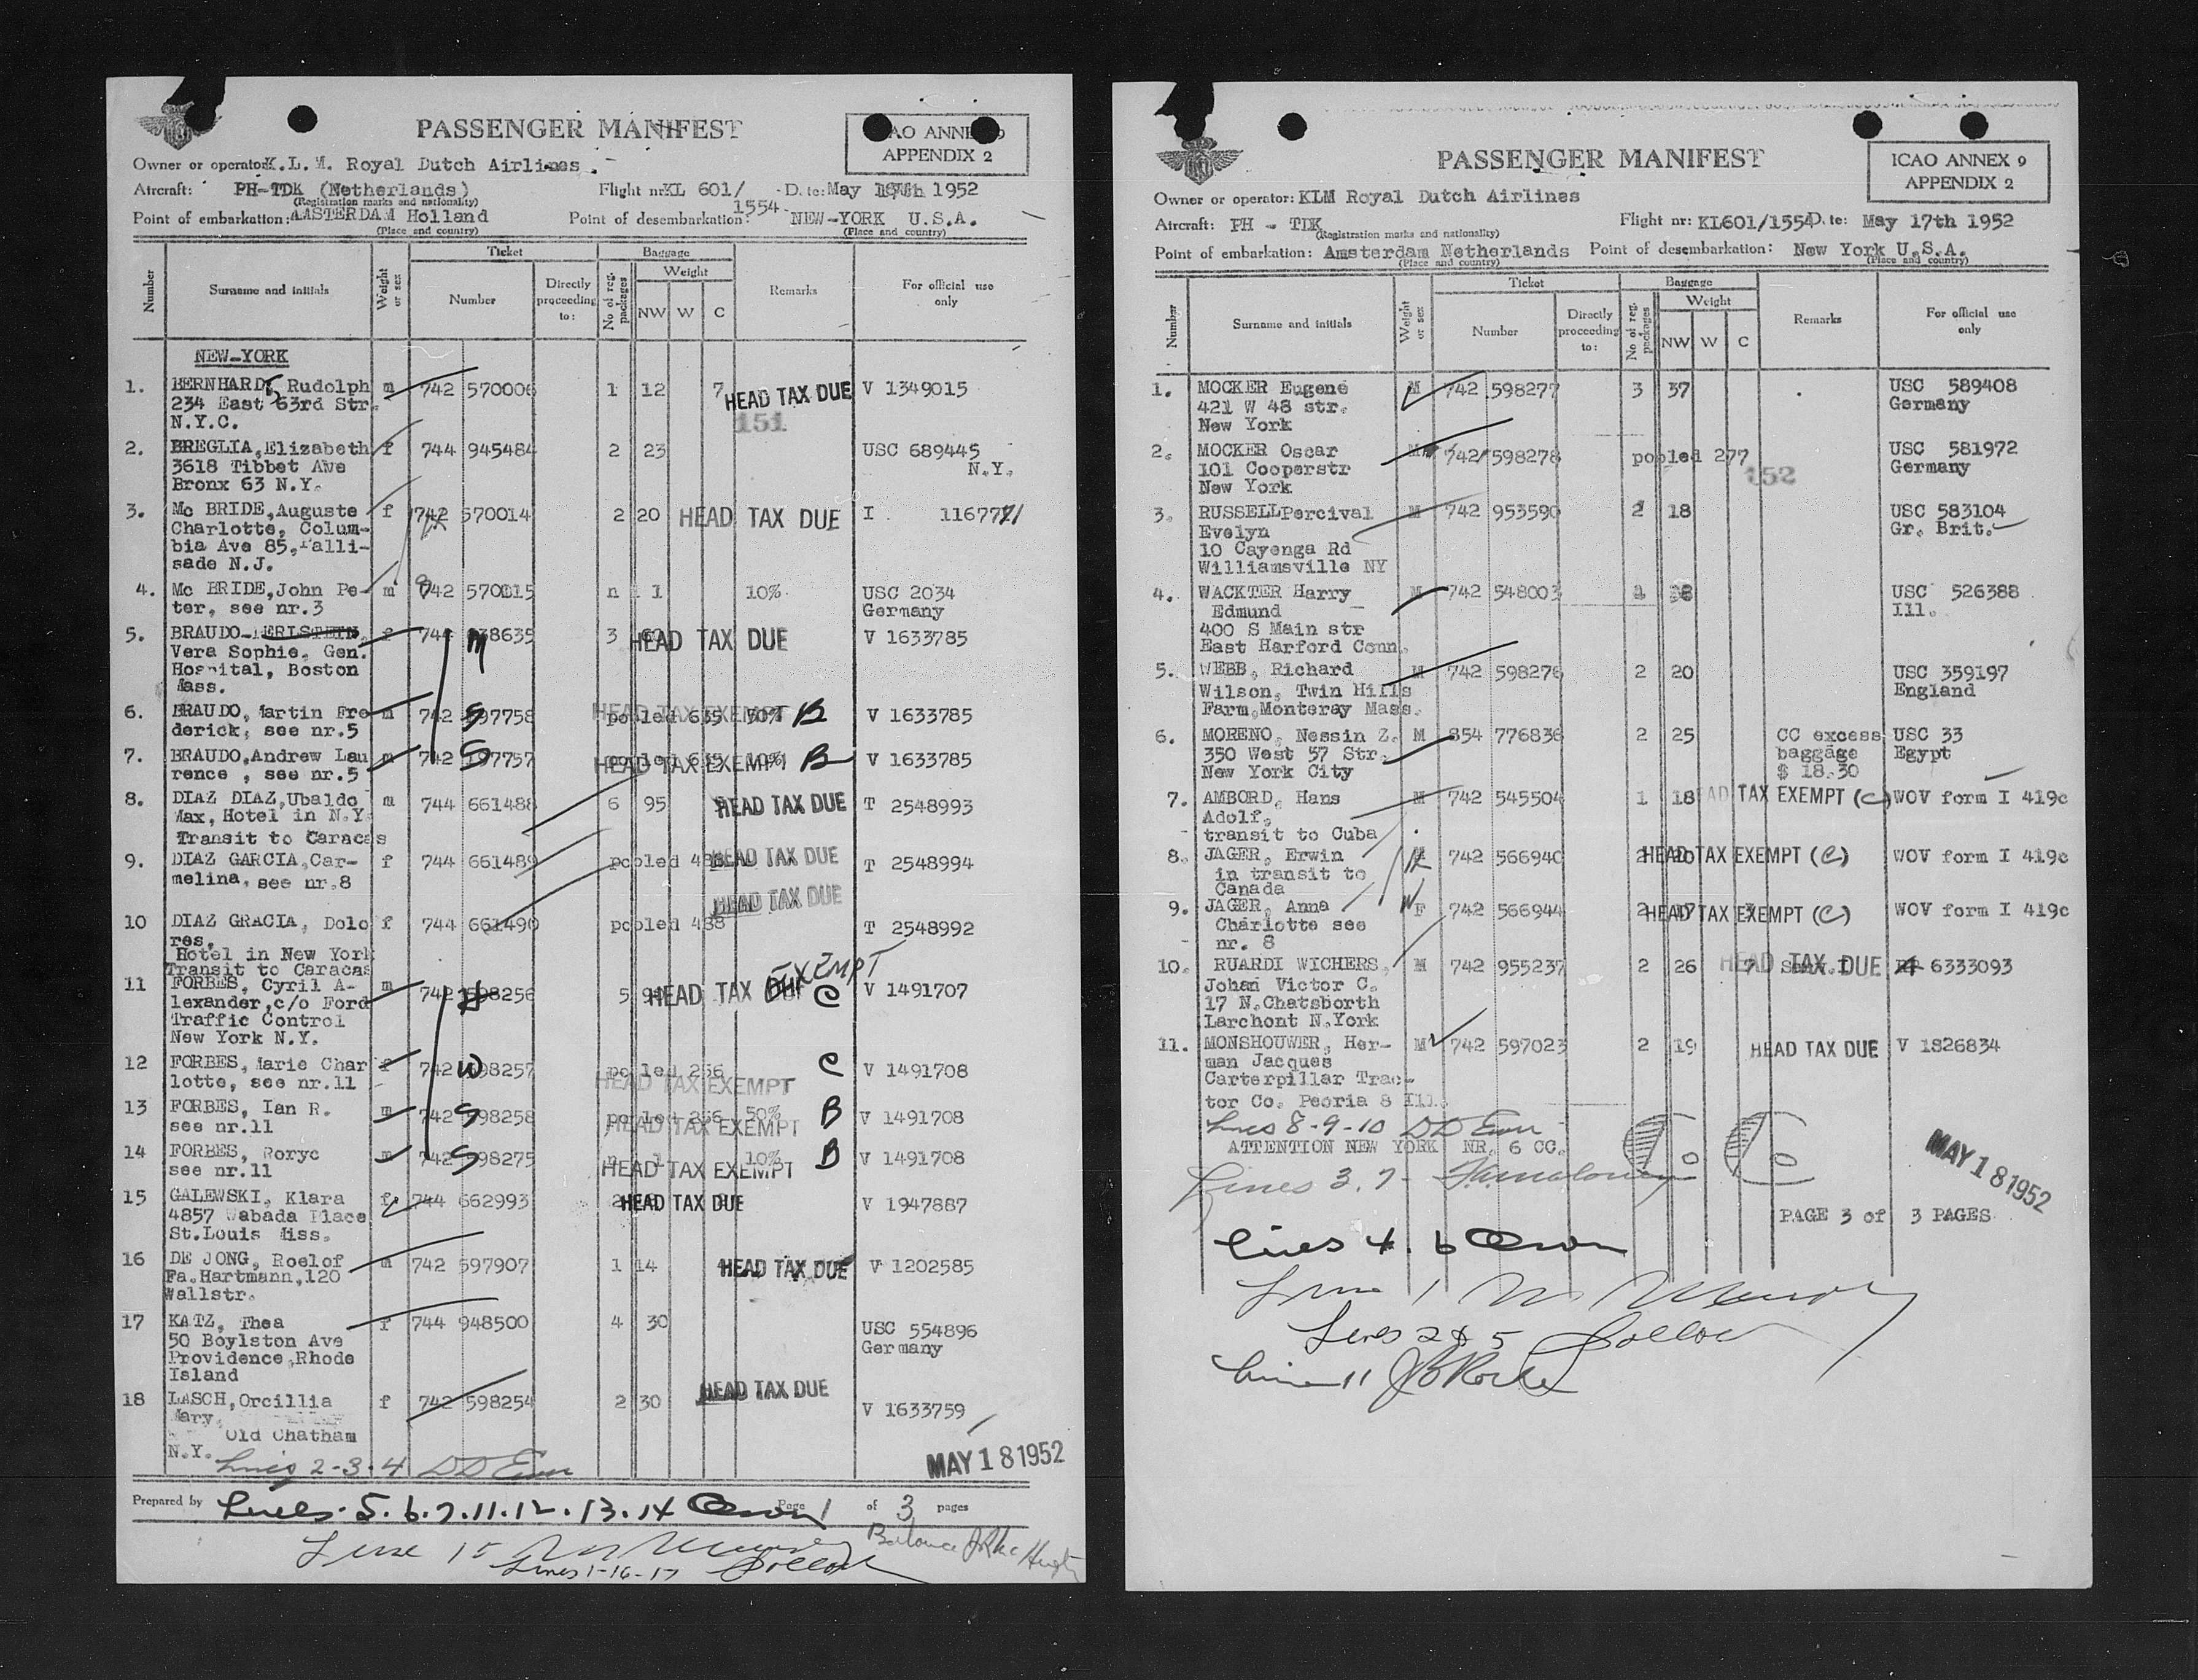 PASSENGER MANIFEST
ICAO ANNEX 9
APPENDIX 2
Owner or operator: K.L.M. Royal Dutch Airlines.
Aircraft: PH-TDK (Netherlands)
(Registration marks and nationality)
Flight nr: KL 601/1554
Date: May 1952
Point of embarkation: AMSTERDAM Holland
(Place and country)
Point of desembarkation: NEW-YORK U.S.A.
(Place and country)
Number
Surname and initials
Weight or sex
Ticket
Number
Directly proceeding to:
Baggage
No of reg. packages
Weight
NW W C
Remarks
For official use only
NEW-YORK
1. BERNHARD, Rudolph m 742 570006 1 12 7 HEAD TAX DUE V 1349015
234 East 63rd Str.
N.Y.C.
151
2. BREGLIA,Elizabeth f 744 945484 2 23 USC 689445
3618 Tibbet Ave N.Y.
Bronx 63 N.Y.
3. Mc BRIDE,Auguste f 742 570014 2 20 HEAD TAX DUE I
Charlotte, Colum-
bia Ave 85, Palli-
sade N.J.
4. Mc BRIDE,John Pe- m 742 570015 n 1 10% USC 2034
ter, see nr.3 Germany
5. BRAUDO- f 744 3 HEAD TAX DUE V 1633785
Vera Sophie, Gen.
Hospital, Boston
Mass.
M
6. BRAUDO, Martin Fre m 742 597758 pooled 635 50% HEAD TAX EXEMPT B V 1633785
derick, see nr.5
S
7. BRAUDO,Andrew Lau m 742 597757 pooled 635 10% HEAD TAX EXEMPT B V 1633785
rence , see nr.5
S
8. DIAZ DIAZ,Ubaldo m 744 661488 6 95 HEAD TAX DUE T 2548993
Max, Hotel in N.Y.
Transit to Caracas
9. DIAZ GARCIA,Car- f 744 661489 pooled 488 HEAD TAX DUE T 2548994
melina, see nr.8
HEAD TAX DUE
10 DIAZ GRACIA, Dolo f 744 661490 pooled 488 T 2548992
res,
Hotel in New York
Transit to Caracas
11 FORBES, Cyril A- m 742 598256 5 HEAD TAX EXEMPT C V 1491707
lexander,c/o Ford
Traffic Control
New York N.Y.
H
12 FORBES, Marie Char f 742 598257 pooled 256 HEAD TAX EXEMPT C V 1491708
lotte, see nr.11
W
13 FORBES, Ian R. m 742 598258 pooled 256 50% HEAD TAX EXEMPT B V 1491708
see nr.11
S
14 FORBES, Roryc m 742 598275 n 1 10% HEAD TAX EXEMPT B V 1491708
see nr.11
S
15 GALEWSKI, Klara f 744 662993 2 HEAD TAX DUE V 1947887
4857 Wabada Place
St.Louis Miss.
16 DE JONG, Roelof m 742 597907 1 14 HEAD TAX DUE V 1202585
Fa.Hartmann,120
Wallstr.
17 KATZ, Thea f 744 948500 4 30 USC 554896
50 Boylston Ave Germany
Providence,Rhode
Island
18 LASCH,Orcillia f 742 598254 2 30 HEAD TAX DUE V 1633759
Mary,
Old Chatham
N.Y.
Lines 2-3-4
MAY 18 1952
Prepared by
Lines. 5. 6. 7. 11. 12. 13. 14
Page 1 of 3 pages
Line 15
Lines 1-16-17
Balance
PASSENGER MANIFEST
ICAO ANNEX 9
APPENDIX 2
Owner or operator: KLM Royal Dutch Airlines
Aircraft: PH - TDK
(Registration marks and nationality)
Flight nr: KL601/1554
Date: May 17th 1952
Point of embarkation: Amsterdam Netherlands
(Place and country)
Point of desembarkation: New York U.S.A.
(Place and country)
Number
Surname and initials
Weight or sex
Ticket
Number
Directly proceeding to:
Baggage
No of reg. packages
Weight
NW W C
Remarks
For official use only
1. MOCKER Eugene M 742 598277 3 37 USC 589408
421 W 48 str. Germany
New York
2. MOCKER Oscar M 742 598278 pooled 277 USC 581972
101 Cooperstr Germany
New York
152
3. RUSSELL Percival M 742 953590 2 18 USC 583104
Evelyn Gr. Brit.
10 Cayenga Rd
Williamsville NY
4. WACKTER Harry M 742 548003 USC 526388
Edmund Ill.
400 S Main str
East Harford Conn.
5. WEBB, Richard M 742 598276 2 20 USC 359197
Wilson, Twin Hills England
Farm,Monteray Mass.
6. MORENO, Nessin Z. M 854 776836 2 25 CC excess USC 33
350 West 57 Str. baggage Egypt
New York City $ 18.30
7. AMBORD, Hans M 742 545504 1 18 HEAD TAX EXEMPT (C) WOV form I 419c
Adolf,
transit to Cuba
8. JAGER, Erwin M 742 566940 2 20 HEAD TAX EXEMPT (C) WOV form I 419c
in transit to
Canada
H
9. JAGER, Anna F 742 566944 2 17 HEAD TAX EXEMPT (C) WOV form I 419c
Charlotte see
nr. 8
W
10. RUARDI WICHERS, M 742 955237 2 26 HEAD TAX DUE 6333093
Johan Victor C.
17 N.Chatsborth
Larchont N.York
11. MONSHOUWER, Her- M 742 597023 2 19 HEAD TAX DUE V 1826834
man Jacques
Carterpillar Trac-
tor Co. Peoria 8 Ill.
Lines 8-9-10
ATTENTION NEW YORK NR. 6 CC.
Lines 3. 7-
MAY 18 1952
PAGE 3 of 3 PAGES
Lines 4. 6
Line 1
Lines 2 & 5
Line 11